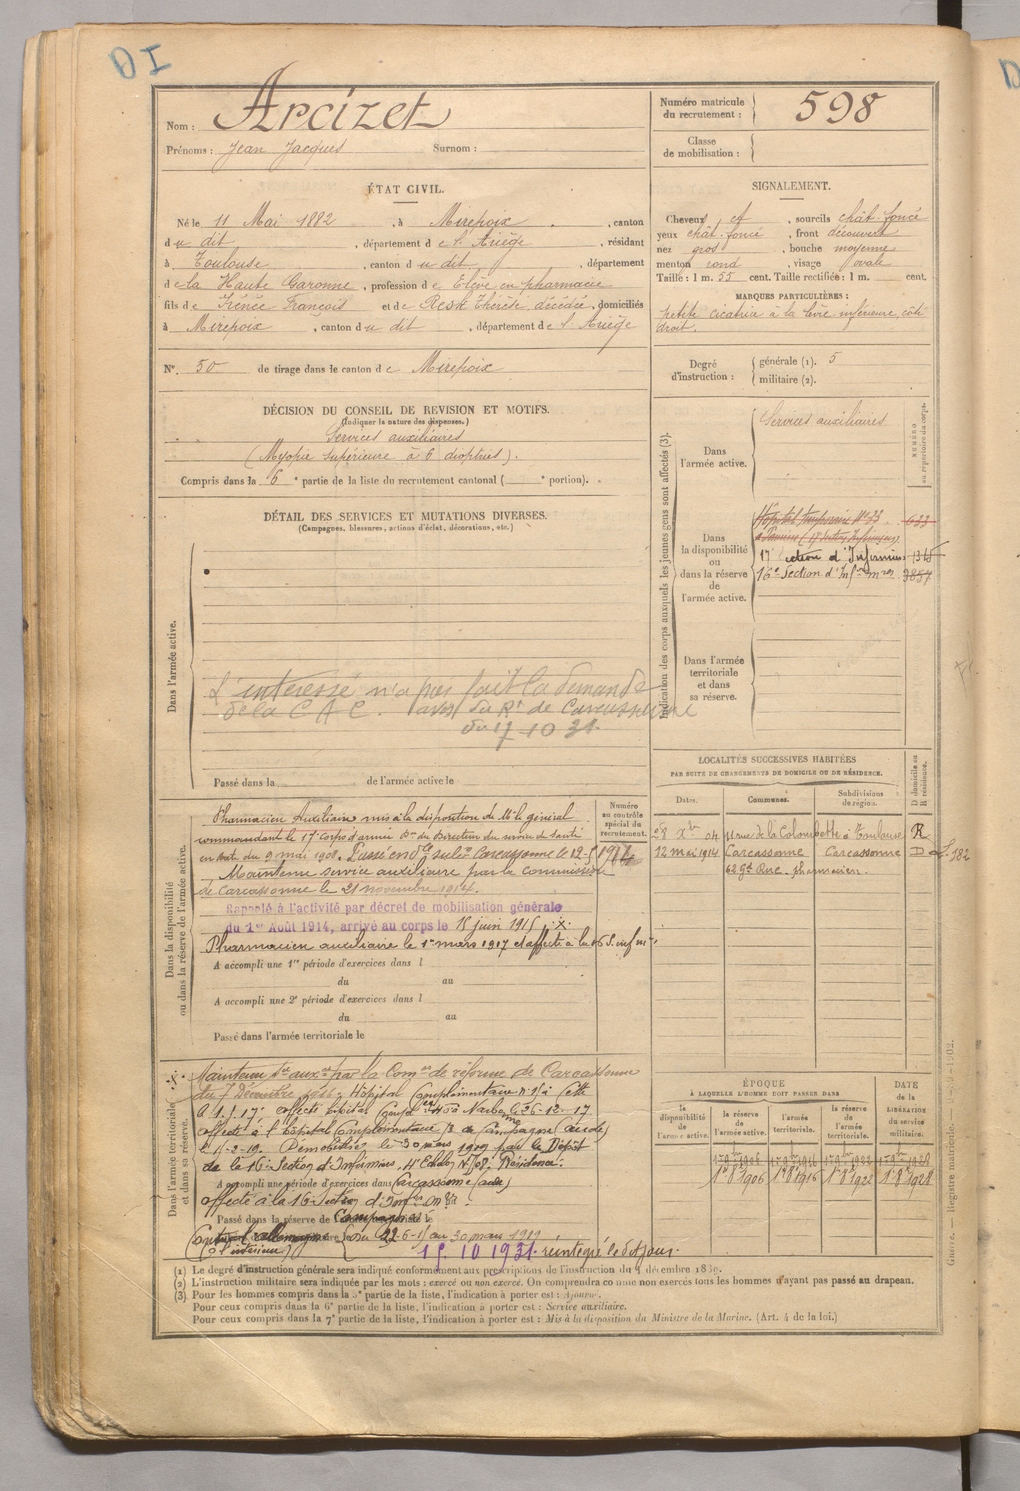 DI
Nom : Arcizet
Prénoms : Jean Jacques Surnom :
Numéro matricule du recrutement : 598
Classe de mobilisation :
ÉTAT CIVIL.
Né le 11 Mai 1882, à Mirepoix, canton
du dit, département de l'Ariège, résidant
à Toulouse, canton du dit, département
de la Haute Garonne, profession de Élève en pharmacie
fils de Irénée François et de Resk Thérèse, décédée, domiciliés
à Mirepoix, canton du dit, département de l'Ariège
N° 50 de tirage dans le canton de Mirepoix
SIGNALEMENT.
Cheveux et, sourcils chât. foncé
yeux chât. foncé, front découvert
nez gros, bouche moyenne
menton rond, visage ovale
Taille : 1 m. 55 cent. Taille rectifiée : 1 m. cent.
MARQUES PARTICULIÈRES :
petite cicatrice à la lèvre inférieure, côté
droit.
Degré d'instruction : générale (1). 5
militaire (2).
DÉCISION DU CONSEIL DE REVISION ET MOTIFS.
(Indiquer la nature des dispenses.)
Services auxiliaires
(Myopie supérieure à 6 dioptries).
Compris dans la 6e partie de la liste du recrutement cantonal ( e portion).
DÉTAIL DES SERVICES ET MUTATIONS DIVERSES.
(Campagnes, blessures, actions d'éclat, décorations, etc.)
Dans l'armée active.
L'intéressé n'a pas fait la demande
de la C A C. avis du Rt de Carcassonne
du 17-10 31.
Passé dans la de l'armée active le
Indication des corps auxquels les jeunes gens sont affectés (3).
NUMÉRO au répertoire du corps.
Dans l'armée active.
Services auxiliaires
Dans la disponibilité ou dans la réserve de l'armée active.
Hôpital temporaire N° 23 633
17 Section d'Infirmiers 1315
16e Section d'Infirmres 3857
Dans l'armée territoriale et dans sa réserve.
Dans la disponibilité ou dans la réserve de l'armée active.
Numéro au contrôle spécial du recrutement.
Pharmacien Auxiliaire mis à la disposition de Mr le général
commandant le 17e corps d'armée Don du Directeur du service de santé
en date du 9 mai 1908. Passé en dle subdon Carcassonne le 12-5 1914
Maintenu service auxiliaire par la commission
de Carcassonne le 21 novembre 1914.
Rappelé à l'activité par décret de mobilisation générale
du 1er Août 1914, arrivé au corps le 18 juin 1915 .X.
Pharmacien auxiliaire le 1er mars 1917 et affecté à la 16 S. infres
A accompli une 1re période d'exercices dans l
du au
A accompli une 2e période d'exercices dans l
du au
Passé dans l'armée territoriale le
LOCALITÉS SUCCESSIVES HABITÉES
PAR SUITE DE CHANGEMENTS DE DOMICILE OU DE RÉSIDENCE.
Dates. Communes. Subdivisions de région. D domicile ou R résidence.
28 Xbre 04 rue de la Colombette à Toulouse R
12 mai 1914 Carcassonne Carcassonne D
62 Gde Rue. pharmacien.
Dans l'armée territoriale et dans sa réserve.
.X. Maintenu Sce auxre par la Comon de réforme de Carcassonne
du 7 Décembre 1916. Hôpital Complémentaire n° à Cette
affecté à l'Hôpital Complémentaire de Campagne (Aude)
le Démobilisé le 30 mars 1919 par le Dépôt
de la 16e Section d'Infirmiers. 4e Echelon N° Résidence.
A accompli une période d'exercices dans Carcassonne (Aude)
affecté à la 16 Section d'Infres
Passé dans la réserve de
Campagne
Contre l'Allemagne
(à l'intérieur) du 22-6-15 au 30 mars 1919
15. 10 1931 réintégré le dit jour.
ÉPOQUE
À LAQUELLE L'HOMME DOIT PASSER DANS
la disponibilité de l'armée active. la réserve de l'armée active. l'armée territoriale. la réserve de l'armée territoriale.
DATE de la LIBÉRATION du service militaire.
1er 9bre 1906 1er 9bre 1916 1er 9bre 1922 1er 9bre 1928
1er 8bre 1906 1er 8bre 1916 1er 8bre 1922 1er 8bre 1928
(1) Le degré d'instruction générale sera indiqué conformément aux prescriptions de l'instruction du 4 décembre 1889.
(2) L'instruction militaire sera indiquée par les mots : exercé ou non exercé. On comprendra comme non exercés tous les hommes n'ayant pas passé au drapeau.
(3) Pour les hommes compris dans la 5e partie de la liste, l'indication à porter est : Ajourné.
Pour ceux compris dans la 6e partie de la liste, l'indication à porter est : Service auxiliaire.
Pour ceux compris dans la 7e partie de la liste, l'indication à porter est : Mis à la disposition du Ministre de la Marine. (Art. 4 de la loi.)